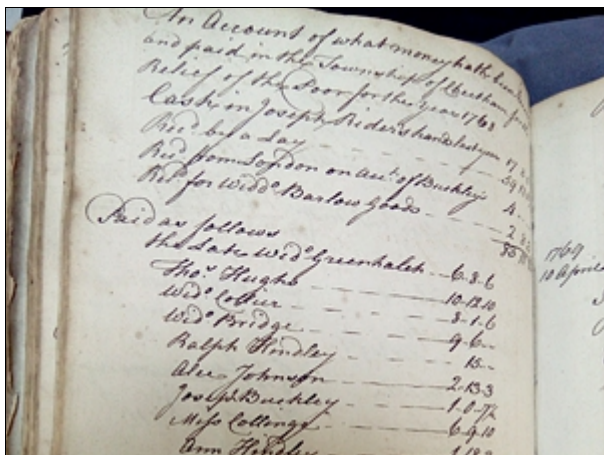 An Account of what money hath been
and paid in the Township of Cheetham for
Relief of the Poor for the Year 1768
Cash in Joseph Rider's hand last year 17
Recd by a Lay 59
Recd from London on Acct of Buckley's 4
Recd for Widdo Barlow Goods 2
Paid as follows
the Late Wido Greenhalch 6-8-6
Thos Hughs 10-12-10
Wido Collier 3-1-6
Wido Bridge 9-6-
Ralph Hindley 15-
Alice Johnson 2-13-3
Joseph Buckley 1-0-7½
Miss Collinge 6-9-10
Ann
1769
10 April